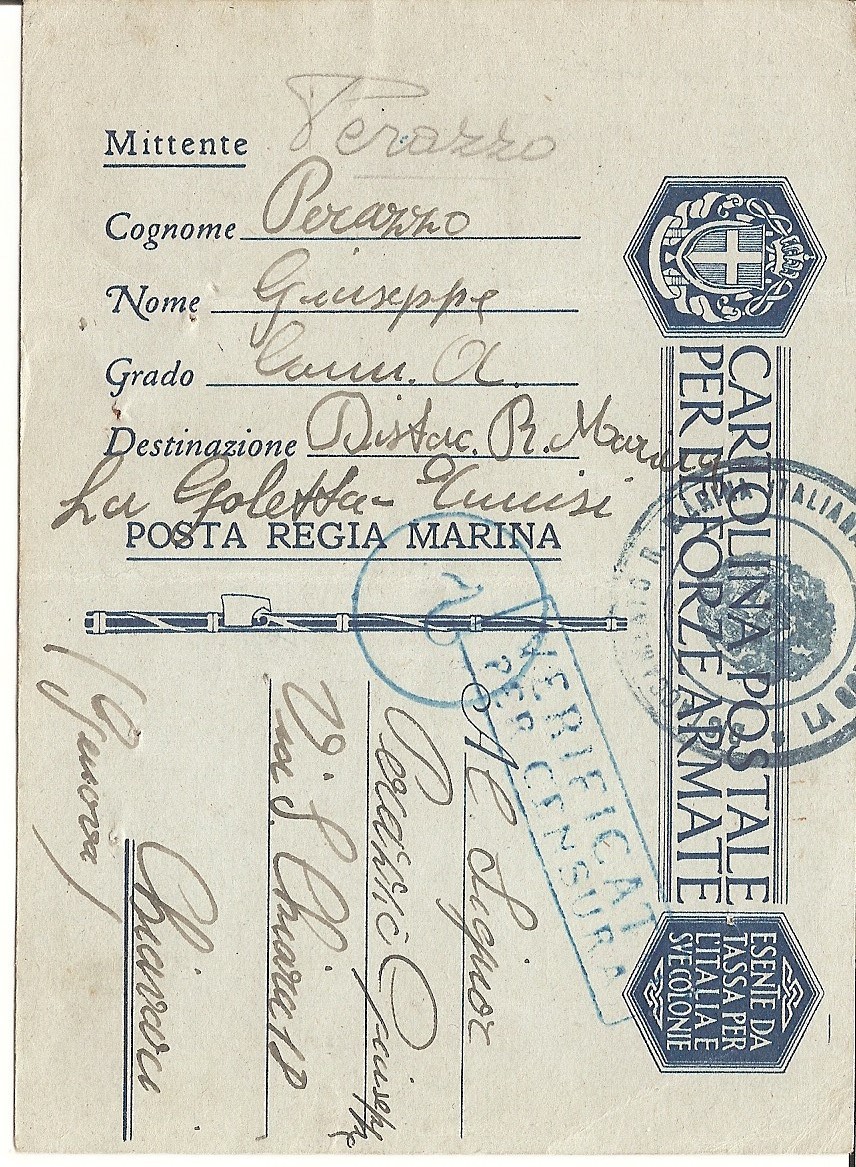 Mittente Perazzo
Cognome Perazzo
Nome Giuseppe
Grado Com. A.
Destinazione Distac. R. Marina
La Goletta - Tunisi
POSTA REGIA MARINA
CARTOLINA POSTALE
PER LE FORZE ARMATE
ESENTE DA
TASSA PER
L'ITALIA E
SVE COLONIE
R. MARINA ITALIANA
LA GO
VERIFICAT
PER CENSURA
Al Signor
Perazzo Giuseppe
Via S. Chiara 18
Chiavari
(Genova)